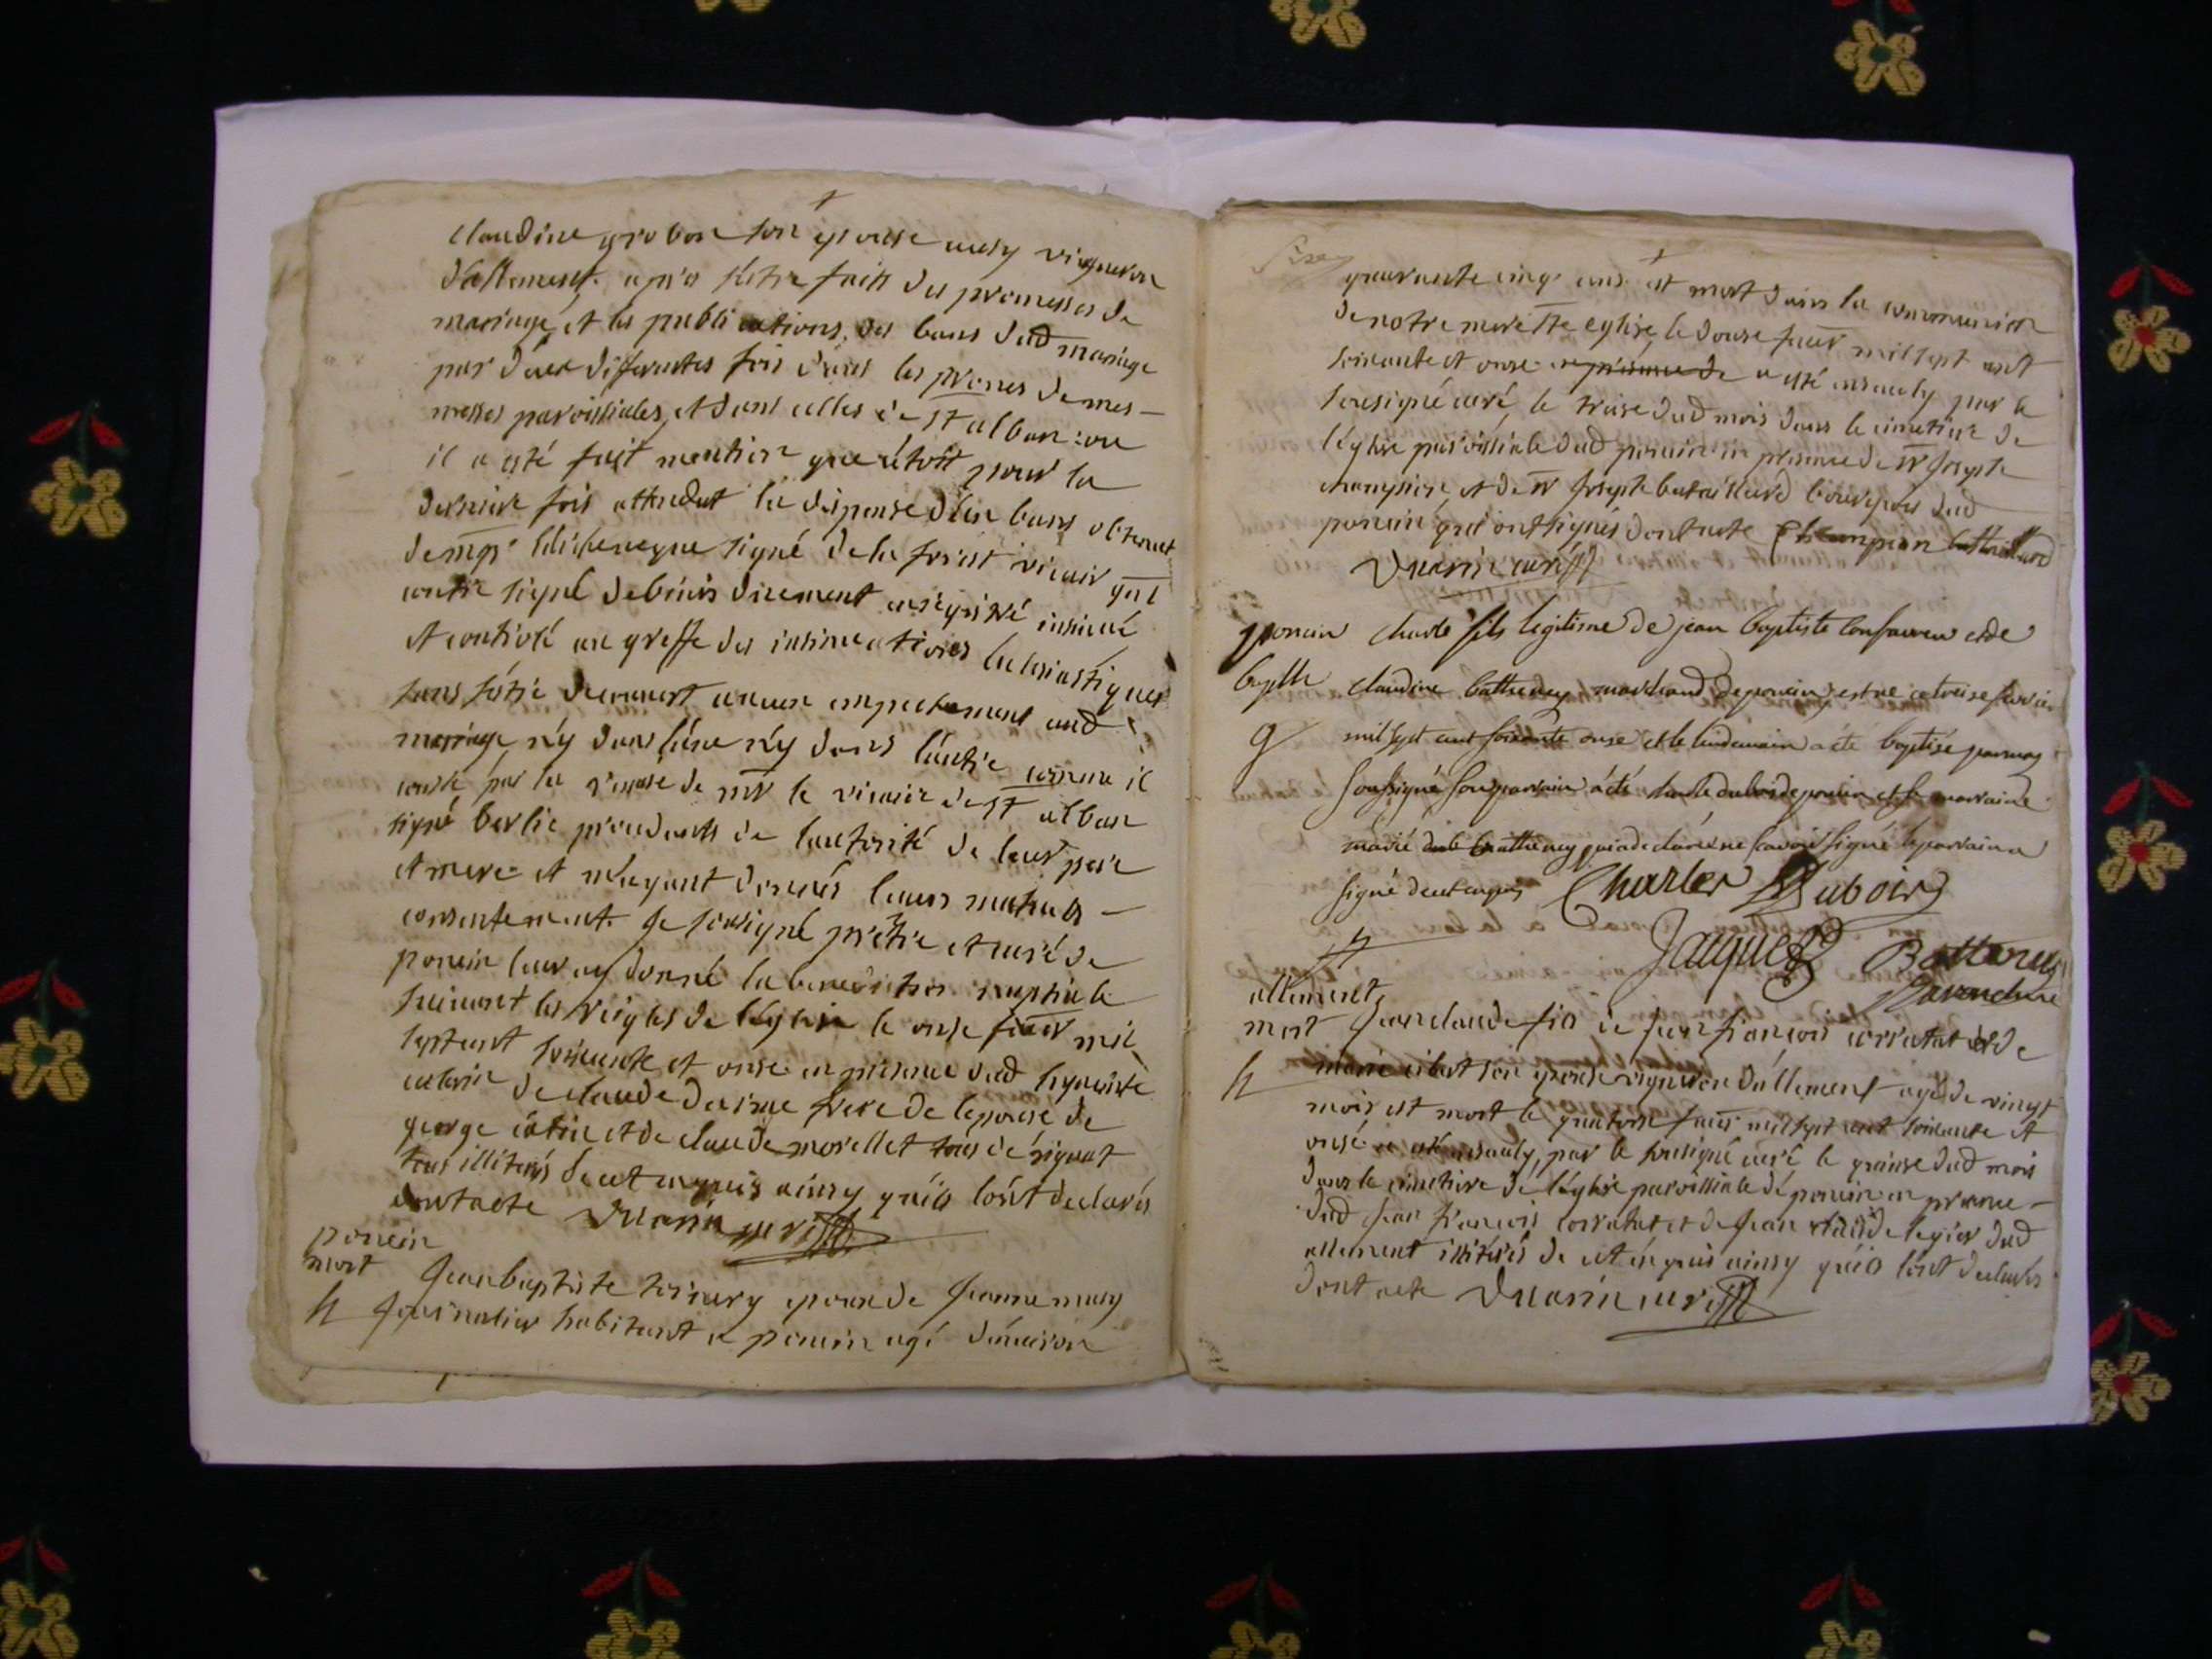 claudine grobon son epouse aussy vigneron
d'allement. apres s'être faits des promesses de
mariage, et les publications des bans dud mariage
par deux differentes fois dans les prones de mes
messes paroissiales, et dans celles de st alban : ou
il a esté fait mention que c'étoit pour la
derniere fois attendut la dispense d'un bans obtenut
de mgr l'archeveque signé de la forist vicair gnl
contre signé debrieis duement enregistré insinué
et controlé au greffe des insinuations eclesiastiques
sans s'être decouvert aucun empechement aud
mariage n'y dans l'une n'y dans l'autre comme il
conste par la remise de mr le vicaire de st alban
signé berlie procedants de l'autorité de leur pere
et mere et m'ayant donnés leurs mutuels
consentement. Je sousigné prêtre et curé de
poncin leur ay donné la benediction nuptiale
suivant les reigles de l'eglise le onse fauier mil
septcent soissante et onse en presence dud
de claude frere de lepouse de
george et de claude morellet tous de signat
tous illiterés de cet enquis ainsy qu'ils l'ont declarés
dont acte Duarin curé
poncin
mort Jean baptiste epoux de Jeanne
h Journalier habitant a poncin agé d'environ
quarante cinq ans est mort dans la communion
de notre mere ste eglise le douse fauier mil sept cent
soissante et onse en présence de a esté ensevely par le
sousigné curé le treise dud mois dans le cimetiere de
l'eglise paroissiale dud poncin en presence de sr Joseph
champion, et de sr Joseph bataillard bourgeois dud
poncin qui ont signés dont acte Champion battaillard
Duarin curé
poncin charle fils legitime de jean baptiste et de
bapte claudine battheney marchand de poncin est né ce treise fevrier
g mil sept cent soissante onse et le lendemain a été baptisé par moy
soussigné son parrain a été charle dubois de poncin et la marraine
marie battheney qui a declaré ne savoir signé le parrain a
signé de ce enquis Charles Dubois
Jaquet Batteney
allement
mort Jean claude fils de Jean françois corratat et de
h marie son epouse vigneron d'allement agé de vingt
mois est mort le quatorse fauier mil sept cent soissante et
onse a esté ensevely, par le sousigné curé le quinse dud mois
dans le cimetiere de l'église paroissiale de poncin en presence
dud Jean françois corratat et de Jean claude legier dud
allement illiterés de cet enquis ainsy qu'ils l'ont declarés
dont acte Duarin curé